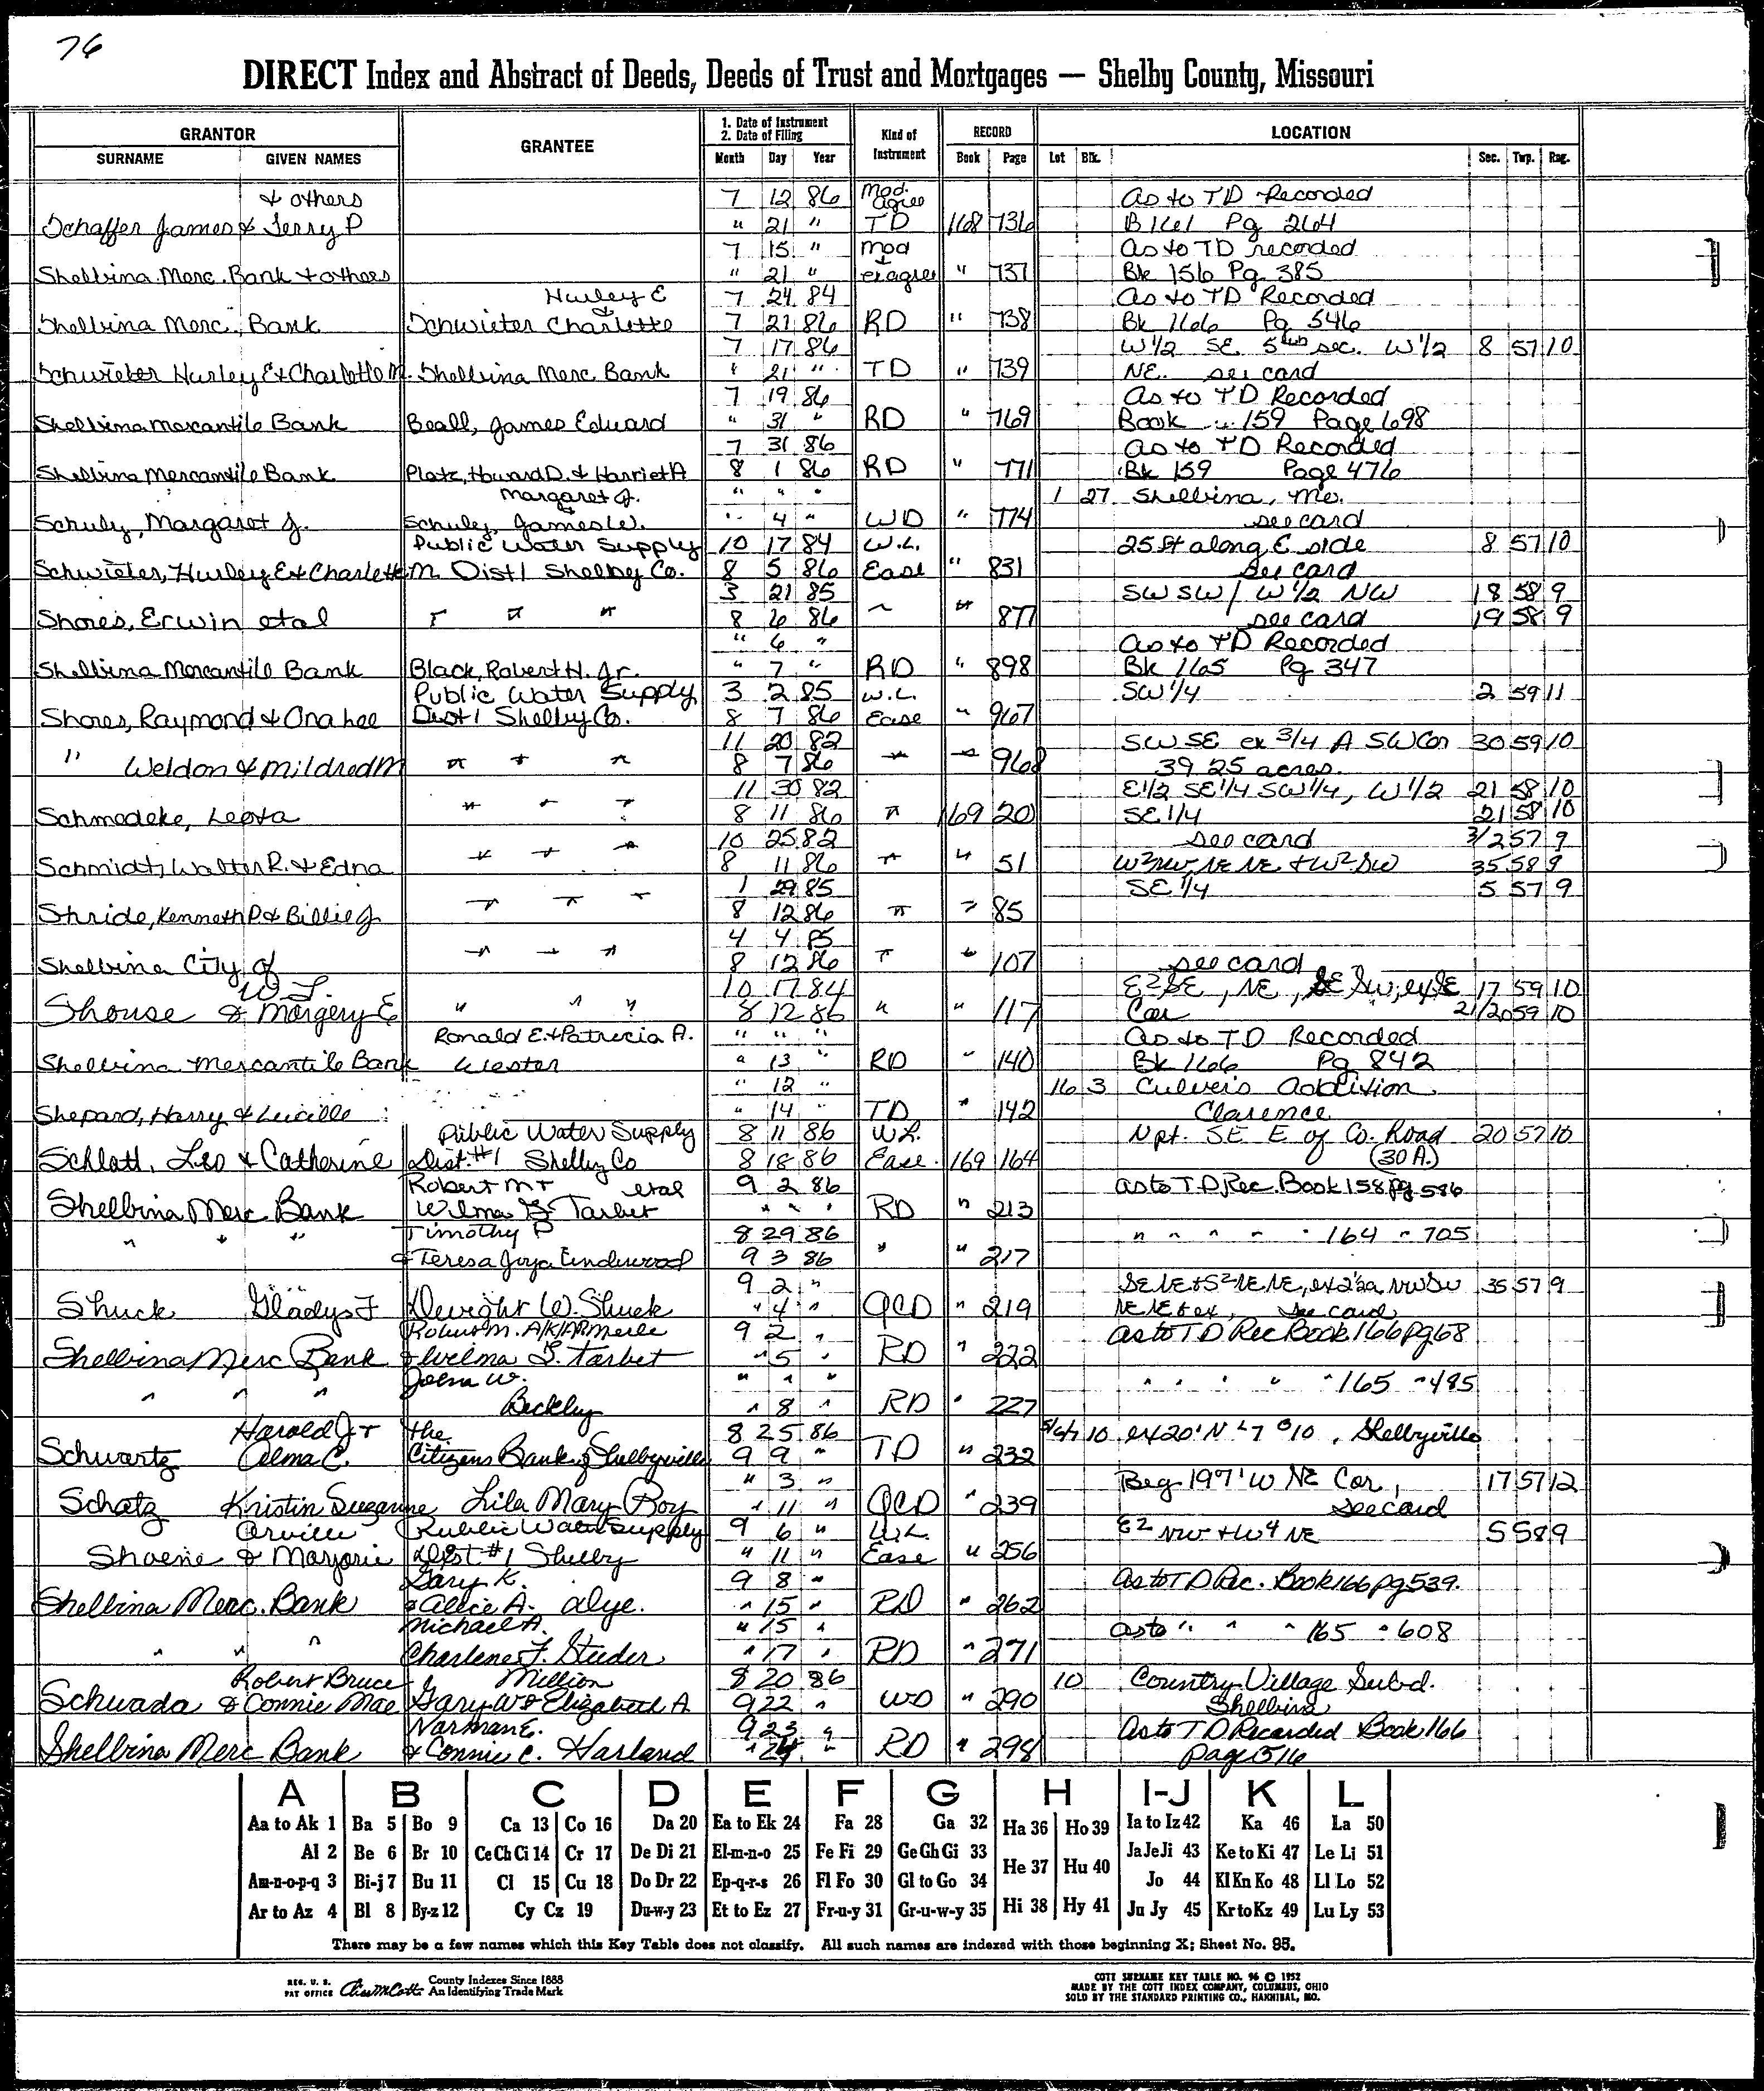 76
DIRECT Index and Abstract of Deeds, Deeds of Trust and Mortgages — Shelby County, Missouri
GRANTOR GRANTEE 1. Date of Instrument 2. Date of Filing Kind of Instrument RECORD LOCATION
SURNAME GIVEN NAMES Month Day Year Book Page Lot Blk. Sec. Twp. Rng.
& others 7 12 86 Mod. agree As to TD Recorded
Schaffer James & Terry P " 21 " TD 168 736 B 161 Pg 264
7 15 " Mod As to TD recorded
Shelbina Merc. Bank & others " 21 " ex agree " 737 Bk 156 Pg 385
Hurley E & 7 24 84 As to TD Recorded
Shelbina Merc. Bank Schwieter Charlotte 7 21 86 RD " 738 Bk 166 Pg 546
7 17 86 W 1/2 SE sec. W 1/2 8 57 10
Schwieter Hurley E & Charlotte M. Shelbina Merc Bank " 21 " TD " 739 NE. see card
7 19 86 As to TD Recorded
Shelbina Mercantile Bank Beall, James Edward " 31 " RD " 769 Book 159 Page 698
7 31 86 As to TD Recorded
Shelbina Mercantile Bank Platz, Howard D. & Harriet A 8 1 86 RD " 771 Bk 159 Page 476
Margaret J. " " " 1 27 Shelbina, Mo.
Schulz, Margaret J. Schulz, James W. " 4 " WD " 774 see card
Public Water Supply 10 17 84 W.L. 25 ft along E side 8 57 10
Schwieter, Hurley E & Charlotte M. Dist 1 Shelby Co. 8 5 86 Ease " 831 See card
3 21 85 SW SW / W 1/2 NW 18 58 9
Shores, Erwin etal " " " 8 6 86 " " 877 see card 19 58 9
" 6 " As to TD Recorded
Shelbina Mercantile Bank Black, Robert H. Jr. " 7 " RD " 898 Bk 165 Pg 347
Public Water Supply 3 2 85 W.L. SW 1/4 2 59 11
Shores, Raymond & Ona Lee Dist 1 Shelby Co. 8 7 86 Ease " 967
11 20 82 SW SE ex 3/4 A SW Cor 30 59 10
" Weldon & Mildred M " " " 8 7 86 " " 968 39 25 acres.
11 30 82 E 1/2 SE 1/4 SW 1/4, W 1/2 21 58 10
Schmedeke, Leota " " " 8 11 86 " 169 20 SE 1/4 21 58 10
10 25 82 see card 3/2 57 9
Schmidt, Walter R. & Edna " " " 8 11 86 " " 51 W² NW, NE NE & W² SW 35 58 9
1 29 85 SE 1/4 5 57 9
Stride, Kenneth P & Billie J " " " 8 12 86 " " 85
4 4 85
Shelbina City of " " " 8 12 86 " " 107 see card
W L. 10 17 84 E² SE, NE, SE SW, ex SE 17 59 10
Shouse & Margery E " " " 8 12 86 " " 117 Cor 21/20 59 10
Ronald E. & Patricia A. " " " As to TD Recorded
Shelbina Mercantile Bank Wester " 13 " RD " 140 Bk 166 Pg 842
" 12 " 16 3 Culver's Addition
Shepard, Harry & Lucille " 14 " TD " 142 Clarence
Public Water Supply 8 11 86 WL. N pt. SE E of Co. Road 20 57 10
Schlatt, Leo & Catherine Dist. #1 Shelby Co 8 18 86 Ease. 169 164 (30 A.)
Robert M & etal 9 2 86 As to TD Rec. Book 158 Pg 586
Shelbina Merc Bank Wilma G. Tarbet " " " RD " 213
" " " Timothy P 8 29 86 " " " " " 164 " 705
& Teresa Joyce Underwood 9 3 86 " " 217
9 2 " SE NE & S² NE NE, ex 2½a NW SW 35 57 9
Shuck Gladys F Dwight W. Shuck " 4 " QCD " 219 NE NE & ex, see card
Robert M. A/K/A R Merle 9 2 " As to TD Rec Book 166 pg 68
Shelbina Merc Bank & Wilma G. Tarbet " 5 " RD " 222
John W. " " " " " " " " 165 " 485
" " " Beckley " 8 " RD " 227
Harold J & the 8 25 86 5/6/7 10 ex 20' N L7 B10, Shelbyville
Schwartz Alma C. Citizens Bank of Shelbyville 9 9 " TD " 232
" 3 " Beg 197' W NE Cor, 17 57 12
Schatz Kristin Suzanne Lila Mary Boy " 11 " QCD " 239 see card
Orville Public Water Supply 9 6 " W.L. E² NW & W⁴ NE 5 58 9
Shoene & Marjorie Dist #1 Shelby " 11 " Ease " 256
Gary K. 9 8 " As to TD Rec. Book 166 pg 539.
Shelbina Merc. Bank & Alice A. Alye. " 15 " RD " 262
Michael A. " 15 " As to " " " 165 " 608
" " " Charlene F. Studer " 17 " RD " 271
Robert Bruce Million 8 20 86 10 Country Village Subd.
Schwada & Connie Mae Gary W & Elizabeth A 9 22 " WD " 290 Shelbina
Norman E. 9 23 " As to TD Recorded Book 166
Shelbina Merc Bank & Connie C. Harland " 24 " RD " 298 page 516
A B C D E F G H I-J K L
Aa to Ak 1 Ba 5 Bo 9 Ca 13 Co 16 Da 20 Ea to Ek 24 Fa 28 Ga 32 Ha 36 Ho 39 Ia to Iz 42 Ka 46 La 50
Al 2 Be 6 Br 10 Ce Ch Ci 14 Cr 17 De Di 21 El-m-n-o 25 Fe Fi 29 Ge Gh Gi 33 He 37 Hu 40 Ja Je Ji 43 Ke to Ki 47 Le Li 51
Am-n-o-p-q 3 Bi-j 7 Bu 11 Cl 15 Cu 18 Do Dr 22 Ep-q-r-s 26 Fl Fo 30 Gl to Go 34 Jo 44 Kl Kn Ko 48 Ll Lo 52
Ar to Az 4 Bl 8 By-z 12 Cy Cz 19 Du-w-y 23 Et to Ez 27 Fr-u-y 31 Gr-u-w-y 35 Hi 38 Hy 41 Ju Jy 45 Kr to Kz 49 Lu Ly 53
There may be a few names which this Key Table does not classify. All such names are indexed with those beginning X; Sheet No. 95.
REG. U. S. PAT OFFICE County Indexes Since 1888 An Identifying Trade Mark
COTT SURNAME KEY TABLE NO. 96 © 1952
MADE BY THE COTT INDEX COMPANY, COLUMBUS, OHIO
SOLD BY THE STANDARD PRINTING CO., HANNIBAL, MO.